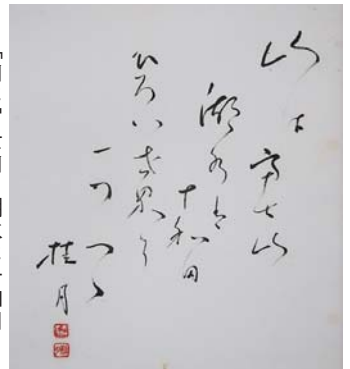 山は富士山
湖水は
十和田
ひろい世界に
一つつゝ
桂月